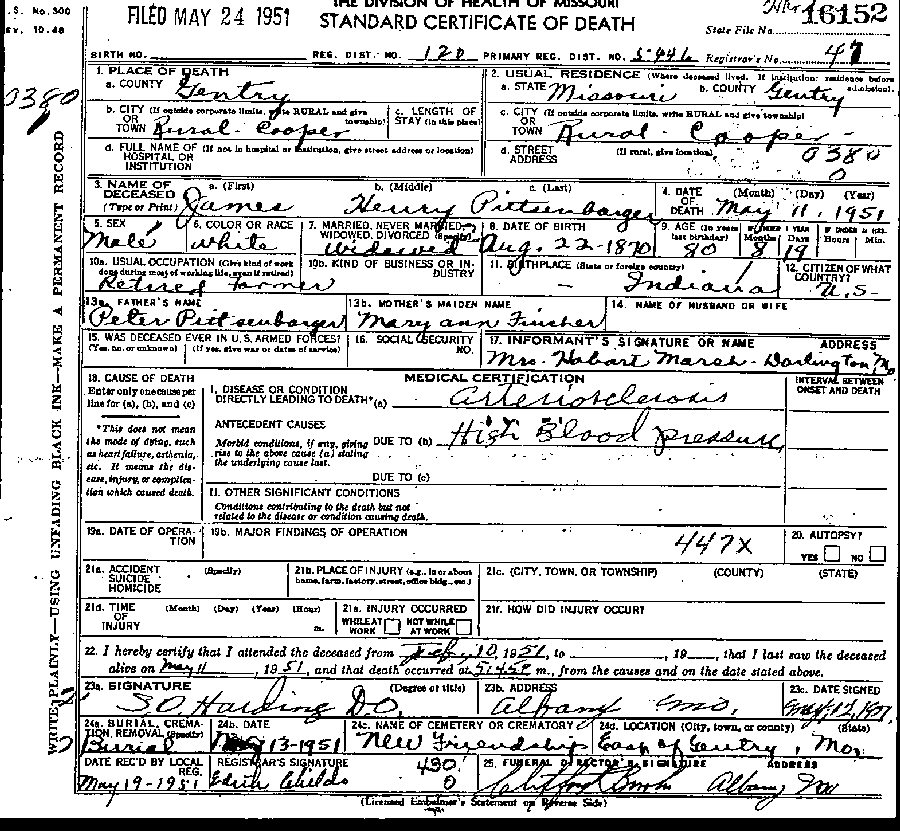 FILED MAY 24 1951
THE DIVISION OF HEALTH OF MISSOURI
STANDARD CERTIFICATE OF DEATH
State File No. 16152
.S. No. 300
EV. 10.48
BIRTH NO. REG. DIST. NO. 120 PRIMARY REG. DIST. NO. 5446 Registrar's No. 47
0380
WRITE PLAINLY—USING UNFADING BLACK INK—MAKE A PERMANENT RECORD
1. PLACE OF DEATH
a. COUNTY Gentry
2. USUAL RESIDENCE (Where deceased lived. If institution: residence before admission).
a. STATE Missouri b. COUNTY Gentry
b. CITY (If outside corporate limits, write RURAL and give township) OR TOWN Rural-Cooper
c. LENGTH OF STAY (in this place)
c. CITY (If outside corporate limits, write RURAL and give township) OR TOWN Rural-Cooper-
d. FULL NAME OF (If not in hospital or institution, give street address or location) HOSPITAL OR INSTITUTION
d. STREET ADDRESS (If rural, give location) 0380
0
3. NAME OF DECEASED (Type or Print) a. (First) James b. (Middle) Henry c. (Last) Pittsenbarger
4. DATE OF DEATH (Month) (Day) (Year) May 11, 1951
5. SEX Male
6. COLOR OR RACE White
7. MARRIED, NEVER MARRIED, WIDOWED, DIVORCED (Specify) Widowed
8. DATE OF BIRTH Aug. 22-1870
9. AGE (In years last birthday) 80 IF UNDER 1 YEAR Months 8 Days 19 IF UNDER 24 HRS. Hours Min.
10a. USUAL OCCUPATION (Give kind of work done during most of working life, even if retired) Retired farmer
10b. KIND OF BUSINESS OR INDUSTRY
11. BIRTHPLACE (State or foreign country) - Indiana
12. CITIZEN OF WHAT COUNTRY? U.S-
13a. FATHER'S NAME Peter Pittsenbarger
13b. MOTHER'S MAIDEN NAME Mary ann Fincher
14. NAME OF HUSBAND OR WIFE
15. WAS DECEASED EVER IN U.S. ARMED FORCES? (Yes, no, or unknown) (If yes, give war or dates of service)
16. SOCIAL SECURITY NO.
17. INFORMANT'S SIGNATURE OR NAME ADDRESS
Mrs. Hobart Marsh-Darlington, Mo
18. CAUSE OF DEATH
Enter only one cause per line for (a), (b), and (c)
*This does not mean the mode of dying, such as heart failure, asthenia, etc. It means the disease, injury, or complication which caused death.
MEDICAL CERTIFICATION
INTERVAL BETWEEN ONSET AND DEATH
I. DISEASE OR CONDITION DIRECTLY LEADING TO DEATH* (a) arteriosclerosis
ANTECEDENT CAUSES
Morbid conditions, if any, giving rise to the above cause (a) stating the underlying cause last.
DUE TO (b) High Blood pressure
DUE TO (c)
II. OTHER SIGNIFICANT CONDITIONS
Conditions contributing to the death but not related to the disease or condition causing death.
19a. DATE OF OPERATION
19b. MAJOR FINDINGS OF OPERATION
447X
20. AUTOPSY?
YES NO
21a. ACCIDENT SUICIDE HOMICIDE (Specify)
21b. PLACE OF INJURY (e.g., in or about home, farm, factory, street, office bldg., etc.)
21c. (CITY, TOWN, OR TOWNSHIP) (COUNTY) (STATE)
21d. TIME OF INJURY (Month) (Day) (Year) (Hour) m.
21e. INJURY OCCURRED WHILE AT WORK NOT WHILE AT WORK
21f. HOW DID INJURY OCCUR?
22. I hereby certify that I attended the deceased from Feb, 10, 1951, to , 19 , that I last saw the deceased
alive on May 11, 1951, and that death occurred at 5:45P m., from the causes and on the date stated above.
23a. SIGNATURE (Degree or title) S.O. Harding D.O.
23b. ADDRESS Albany Mo.
23c. DATE SIGNED May, 12, 1951
24a. BURIAL, CREMATION, REMOVAL (Specify) Burial
24b. DATE May 13-1951
24c. NAME OF CEMETERY OR CREMATORY New Friendship
24d. LOCATION (City, town, or county) (State) East of Gentry, Mo,
DATE REC'D BY LOCAL REG. May 19-1951
REGISTRAR'S SIGNATURE Edith Childs
430
0
25. FUNERAL DIRECTOR'S SIGNATURE ADDRESS
Clifford Albany Mo
(Licensed Embalmer's Statement on Reverse Side)